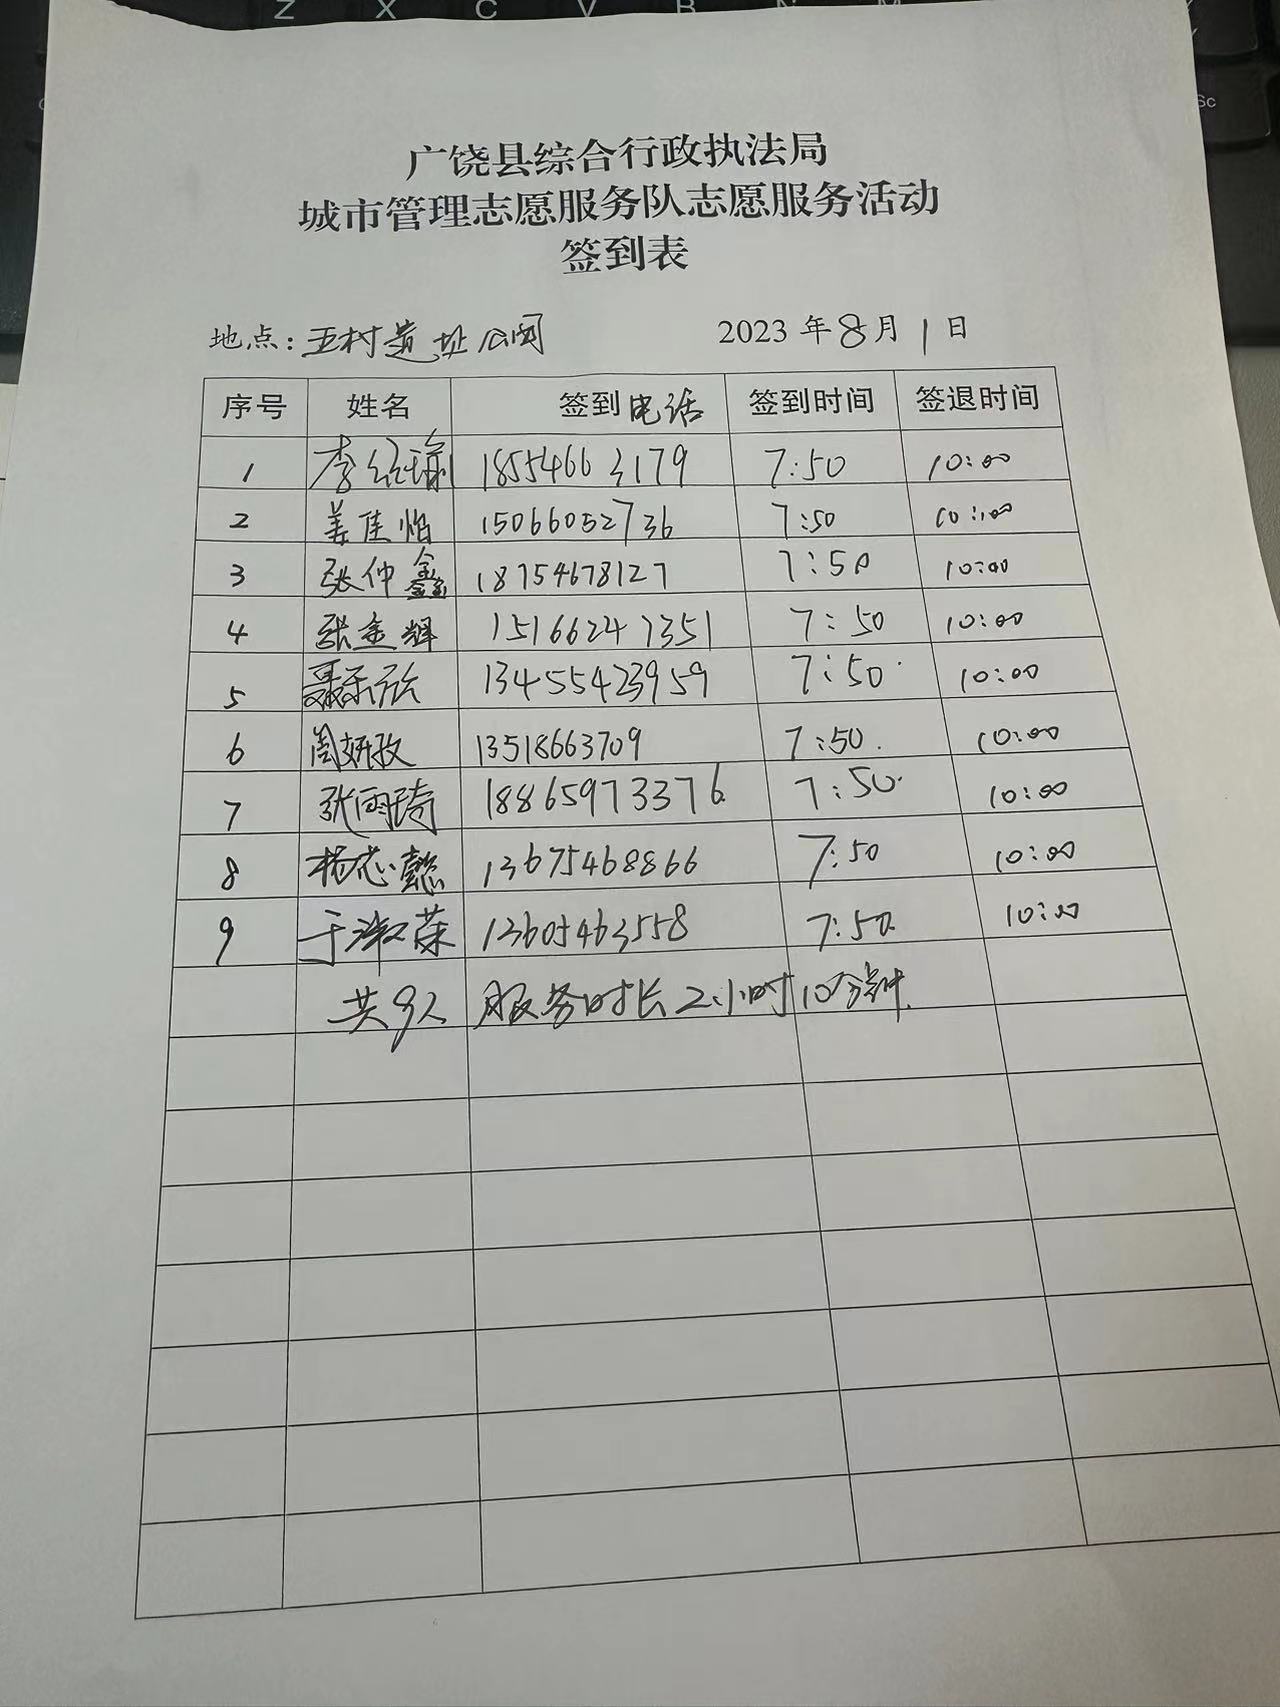 广饶县综合行政执法局
城市管理志愿服务队志愿服务活动
签到表
地点：五村遗址公园 2023 年 8 月 1 日
序号 姓名 签到电话 签到时间 签退时间
1 李绍瑜 18554663179 7:50 10:00
2 姜佳怡 15066052736 7:50 10:00
3 张仲鑫 18754678127 7:50 10:00
4 张金辉 15166247351 7:50 10:00
5 聂乐欣 13455423959 7:50 10:00
6 周妍孜 13518663709 7:50 10:00
7 张雨琦 18865973376 7:50 10:00
8 杨志懿 13675468866 7:50 10:00
9 于淑荣 13605463558 7:50 10:00
共9人 服务时长2小时10分钟